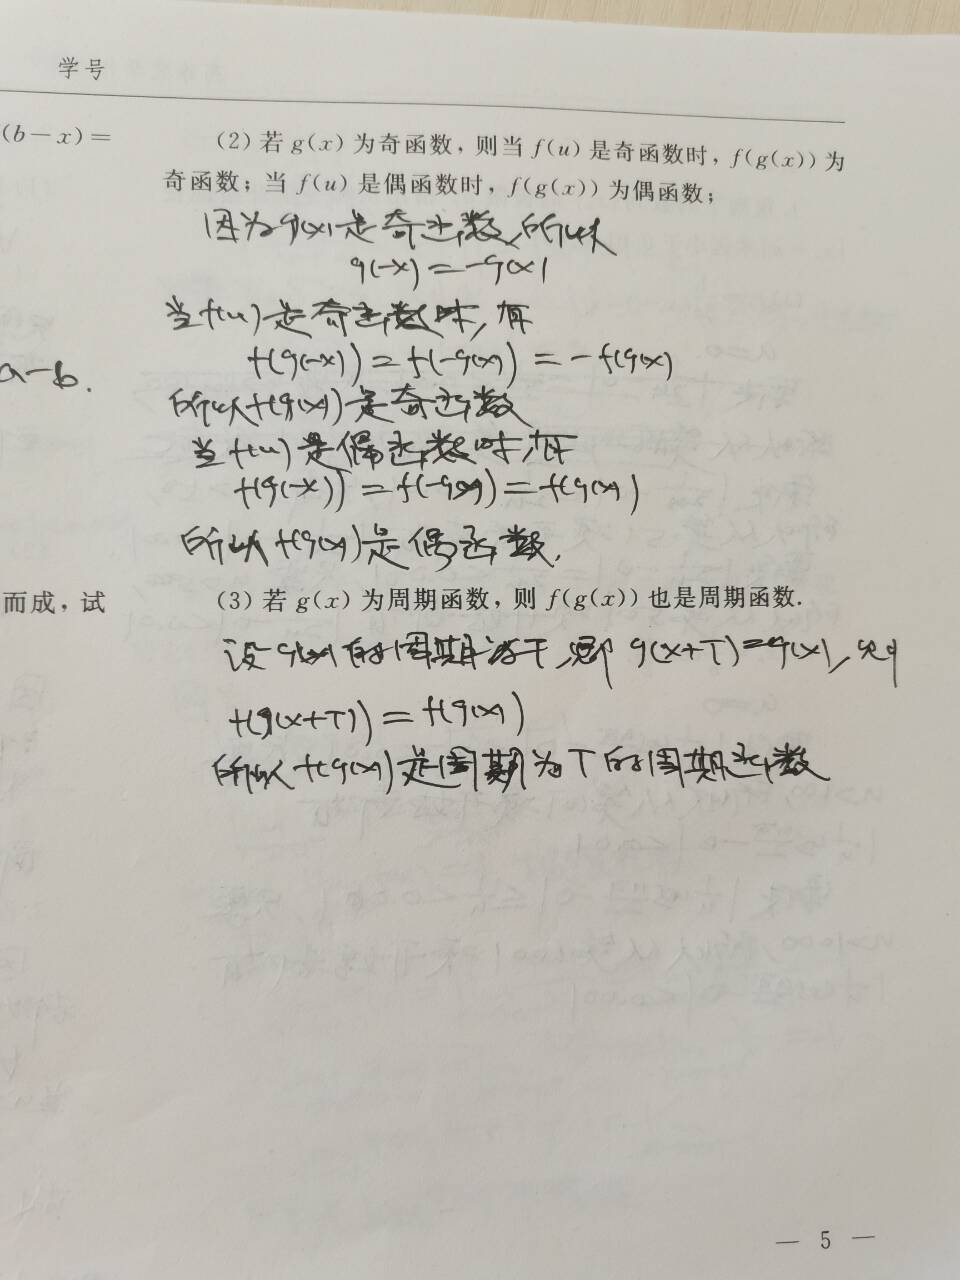 学号
(b－x)＝
(2) 若 g(x) 为奇函数，则当 f(u) 是奇函数时，f(g(x)) 为
奇函数；当 f(u) 是偶函数时，f(g(x)) 为偶函数；
因为g(x)是奇函数,所以
g(-x)=-g(x)
当f(u)是奇函数时,有
f(g(-x))=f(-g(x))=-f(g(x)
a-b.
所以f(g(x))是奇函数
当f(u)是偶函数时,有
f(g(-x))=f(-g(x))=f(g(x))
所以f(g(x))是偶函数.
而成，试
(3) 若 g(x) 为周期函数，则 f(g(x)) 也是周期函数.
设g(x)的周期为T,则 g(x+T)=g(x),则
f(g(x+T))=f(g(x))
所以f(g(x))是周期为T的周期函数
— 5 —